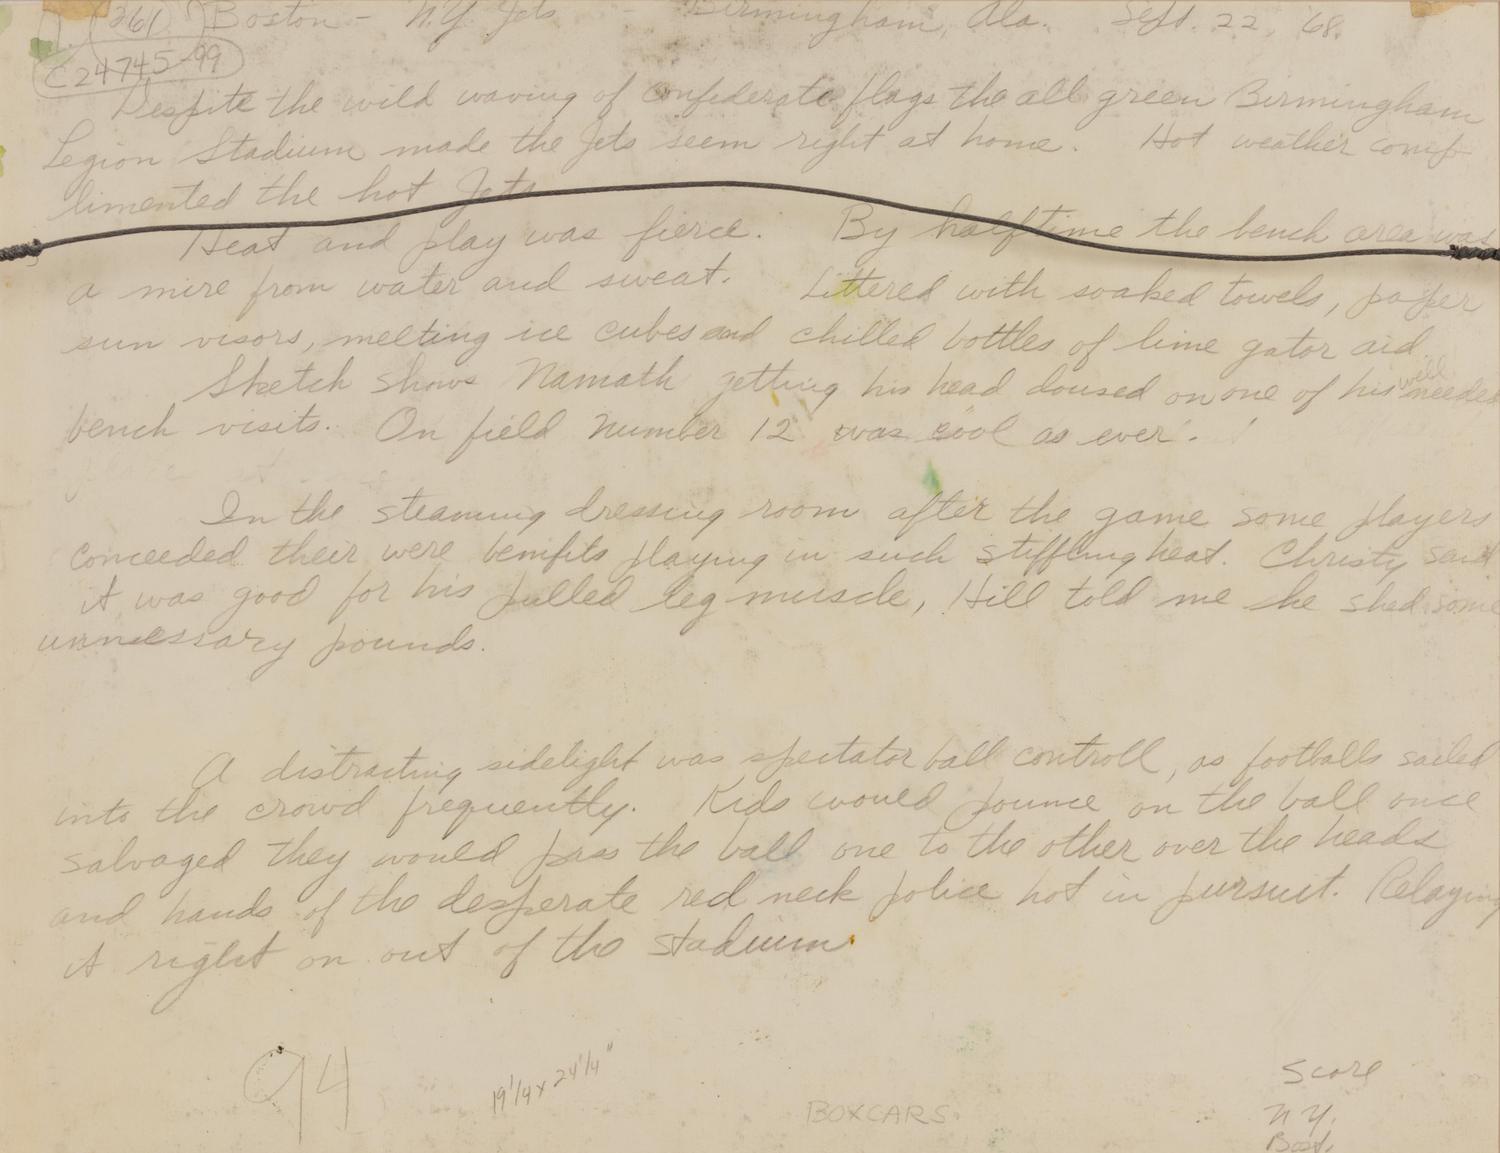 (361) Boston - N.Y. Jets - Birmingham, Ala. Sept. 22, '68.
C24745-99
Despite the wild waving of confederate flags the all green Birmingham
Legion Stadium made the Jets seem right at home. Hot weather comp-
limented the hot Jets
Heat and play was fierce. By halftime the bench area was
a mire from water and sweat. Littered with soaked towels, paper
sun visors, melting ice cubes and chilled bottles of lime gator aid.
Sketch shows Namath getting his head doused on one of his well needed
bench visits. On field number 12 was cool as ever.
In the steaming dressing room after the game some players
conceeded their were benifits playing in such stiffling heat. Christy said
it was good for his pulled leg muscle, Hill told me he shed some
unnessary pounds.
A distracting sidelight was spectator ball controll, as footballs sailed
into the crowd frequently. Kids would pounce on the ball once
salvaged they would pass the ball one to the other over the heads
and hands of the desperate red neck police hot in pursuit. Relaying
it right on out of the stadium
94
19 1/4 x 24 1/4"
BOXCARS.
Score
N.Y.
Bost.